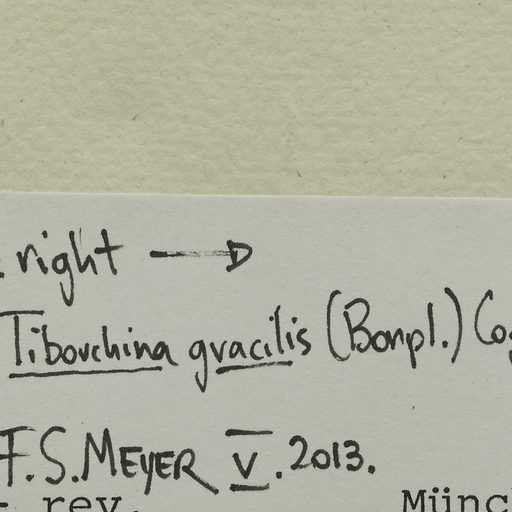 right →
Tibouchina gracilis (Bonpl.) Cog
F.S. MEYER V. 2013.
rev. Münc